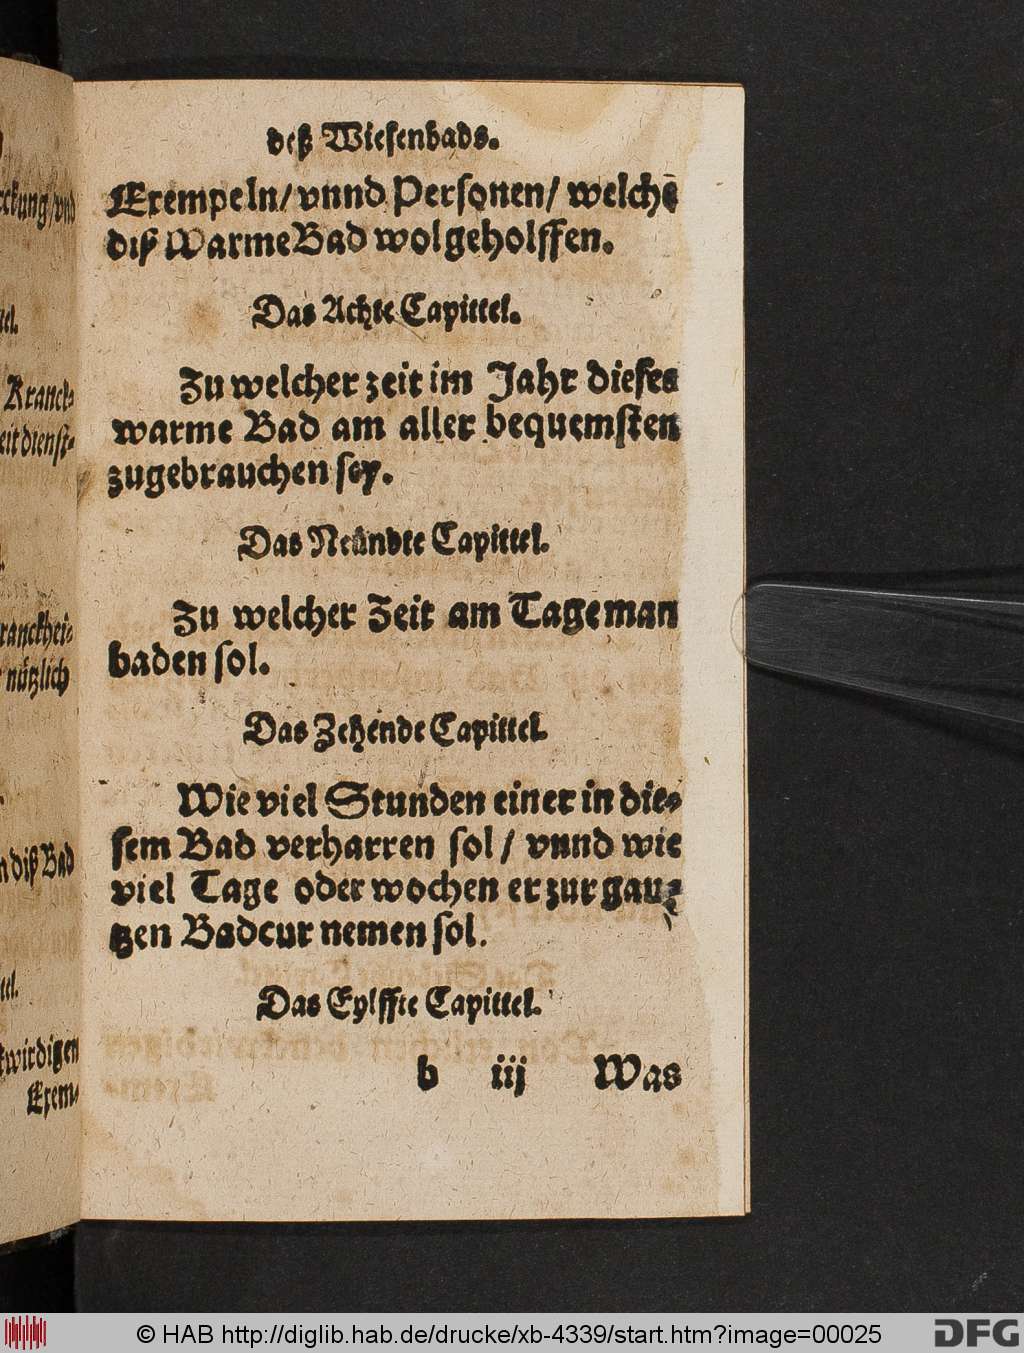 rckung/vnd
tel.
Kranck-
eit dienst-
ranckhei-
nützlich
n diß Bad
tel.
kwirdigen
Exem-
deß Wiesenbads.
Exempeln/ vnnd Personen/ welche
diß Warme Bad wol geholffen.
Das Achte Capittel.
Zu welcher zeit im Jahr dieses
warme Bad am aller bequemsten
zugebrauchen sey.
Das Neündte Capittel.
Zu welcher Zeit am Tage man
baden sol.
Das Zehende Capittel.
Wie viel Stunden einer in die-
sem Bad verharren sol / vnnd wie
viel Tage oder wochen er zur gan-
tzen Badcur nemen sol.
Das Eylffte Capittel.
b iij Was
© HAB http://diglib.hab.de/drucke/xb-4339/start.htm?image=00025
DFG